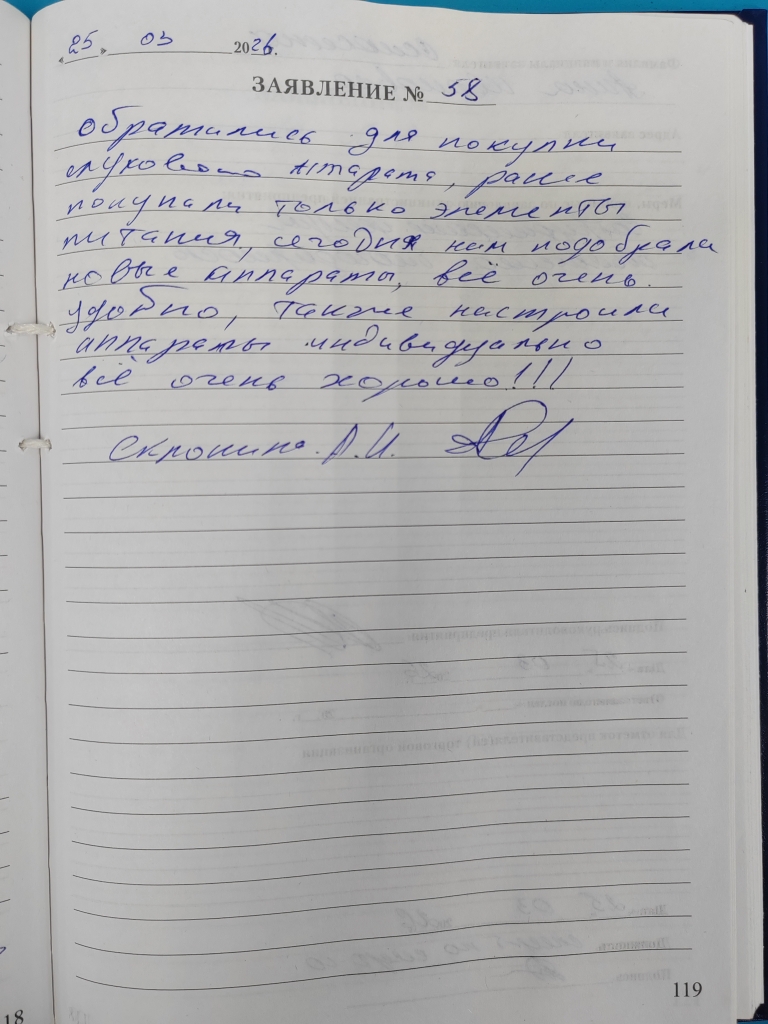 «25» 03 2026г.
ЗАЯВЛЕНИЕ № 58
обратились для покупки
слухового аппарата, ранее
покупали только элементы
питания, сегодня нам подобрали
новые аппараты, всё очень
удобно, также настроили
аппараты индивидуально
всё очень хорошо!!!
А.И.
119
18